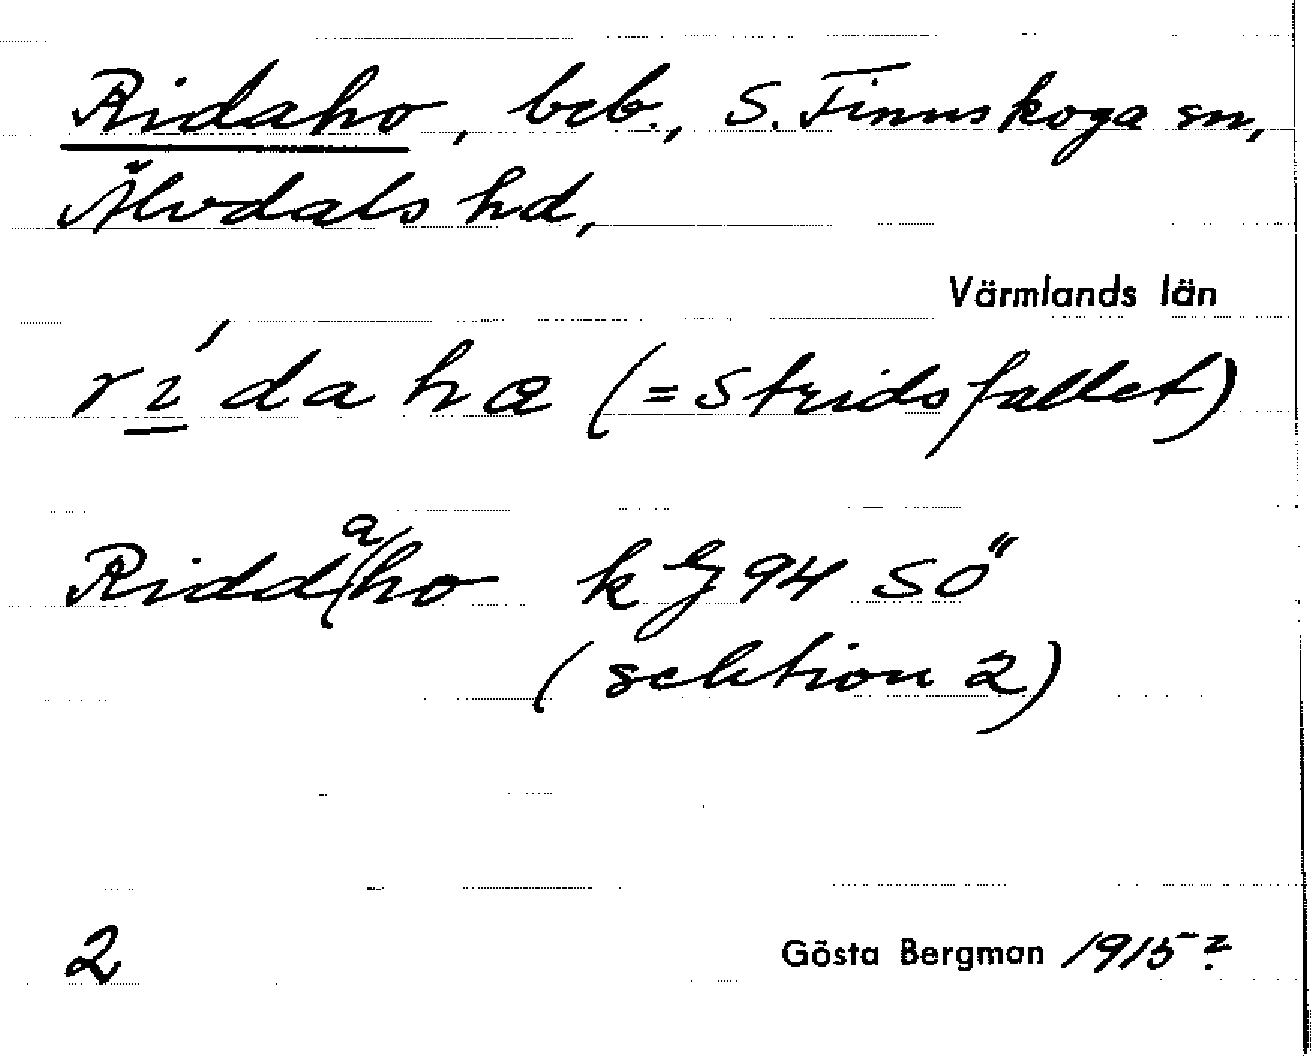 Ridaho, beb., S. Finnskoga sn,
Älvdals hd,
Värmlands län
rɩ́dahæ (=Stridsfallet)
Ridd(a)ho k G 94 SÖ
(sektion 2)
2
Gösta Bergman 1915?